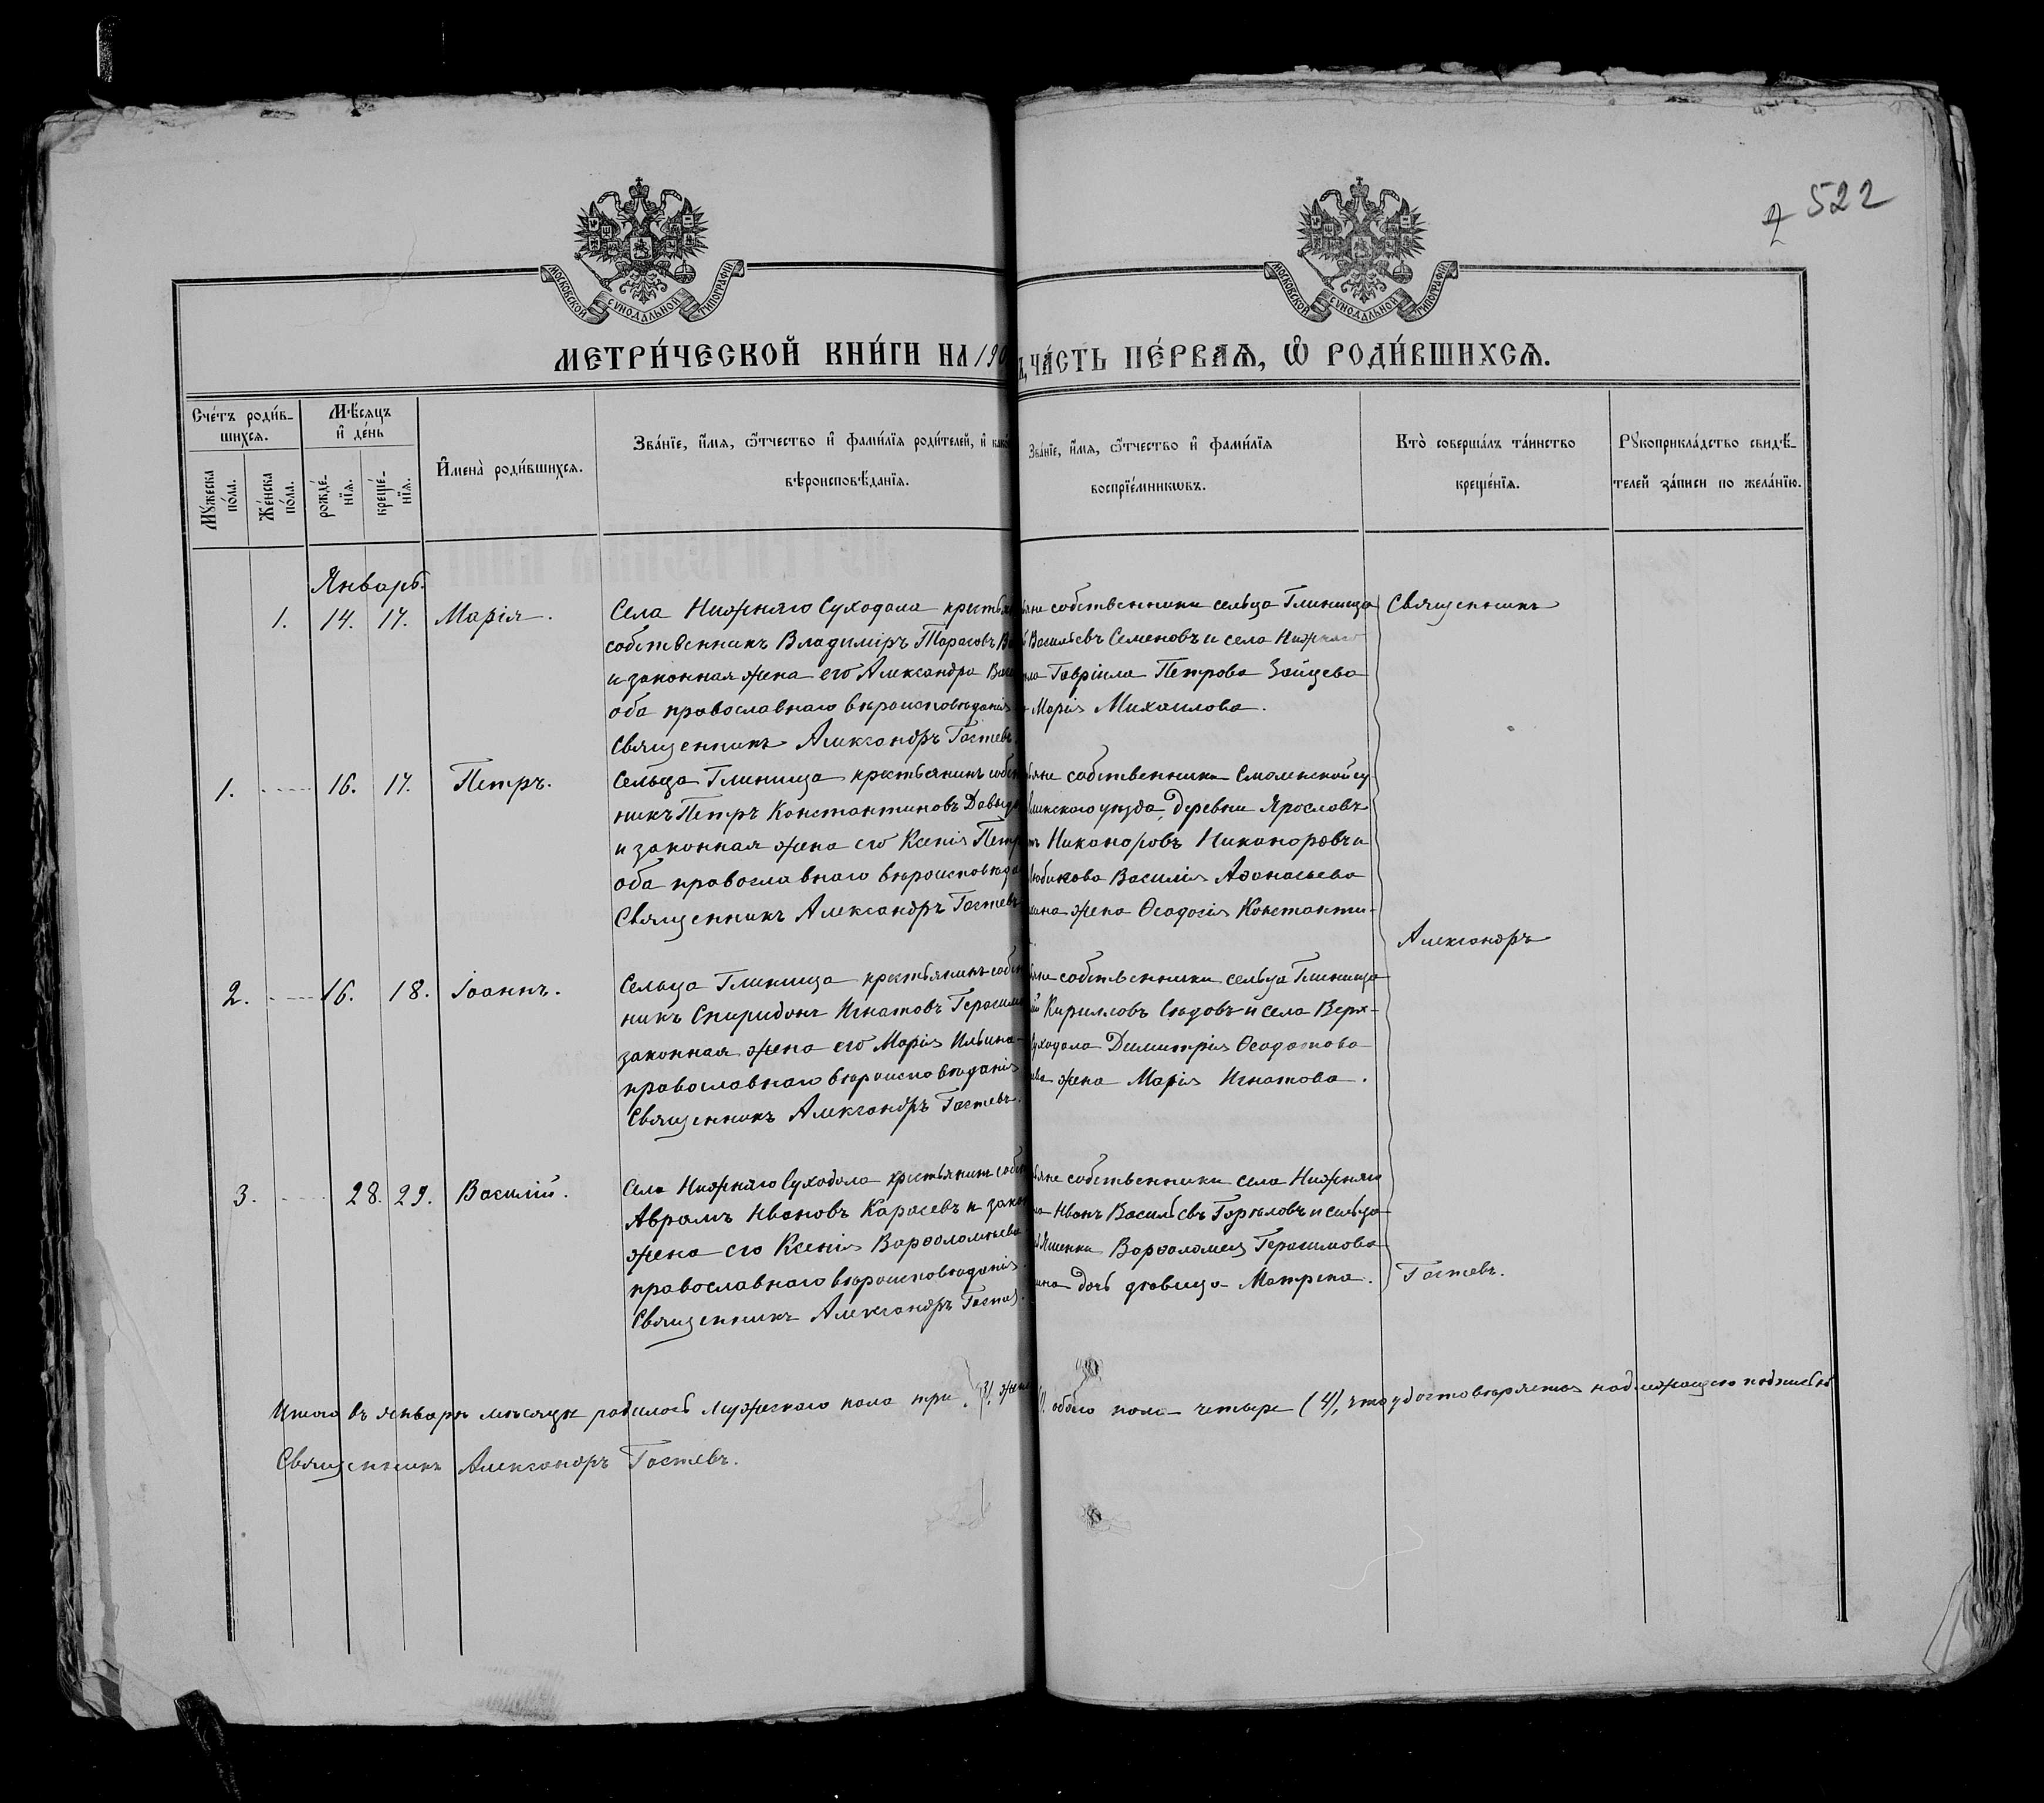 522
2
МОСКОВСКОЙ СѴНОДАЛЬНОЙ ТИПОГРАФІИ
МОСКОВСКОЙ СѴНОДАЛЬНОЙ ТИПОГРАФІИ
МЕТРИ́ЧЕСКОЙ КНИ́ГИ НА 190
ЧА́СТЬ ПЕ́РВАѦ, Ѡ҆ РОДИ́ВШИХСѦ.
Сче́тъ роди́в-
шихсѧ.
Мѣ́сѧцъ
и҆ де́нь
Мꙋ́жеска
по́ла.
Же́нска
по́ла.
рожде́-
нїѧ.
креще́-
нїѧ.
И҆мена̀ роди́вшихсѧ.
Зва́нїе, и҆́мѧ, ѻ҆́тчество и҆ фами́лїѧ роди́телей, и҆
вѣроисповѣ́данїѧ.
Зва́нїе, и҆́мѧ, ѻ҆́тчество и҆ фами́лїѧ
воспрїе́мникѡвъ.
Кто̀ соверша́лъ та́инство
креще́нїѧ.
Рꙋкоприкла́дство свидѣ́-
телей за́писи по жела́нїю.
Январь.
1. 14. 17. Марія.
Села Нижняго Суходола
собственникъ Владиміръ Тарасовъ
и законная жена его Александра
оба православнаго вѣроисповѣданія
Священникъ Александръ Гостевъ.
собственники сельца Глинища
Васильевъ Семеновъ и села Нижняго
Гавріила Петрова Зайцева
Марія Михаилова.
Священникъ
1. 16. 17. Петръ.
Сельца Глинища крестьянинъ
никъ Петръ Константиновъ
и законная жена его Ксенія
оба православнаго
Священникъ Александръ Гостевъ
собственники Смоленской гу
уѣзда, деревни Ярославъ
Никаноровъ Никаноровъ и
Василія Аѳонасьева
жена Ѳеодосія Константи-
Александръ
2. 16. 18. Іоаннъ.
Сельца Глинища крестьянинъ
никъ Спиридонъ Игнатовъ
законная жена его Марія Ильина
православнаго вѣроисповѣданія
Священникъ Александръ Гостевъ.
собственники сельца Глинища
Кирилловъ Сѣдовъ и села Верх-
Димитрія Ѳеодотова
жена Марія Игнатова.
3. 28. 29. Василій.
Села Нижняго Суходола крестьянинъ
Аврамъ Ивановъ Карасевъ и
жена его Ксенія Варѳоломѣева
православнаго вѣроисповѣданія.
Священникъ Александръ
собственники села Нижняго
Иванъ Васильевъ Горѣловъ и сельца
Варѳоломея Герасимова
дочь дѣвица Матрена.
Гостевъ.
Итого въ январѣ мѣсяцѣ родилось мужескаго пола три
обоего пола четыре (4), что удостовѣряется надлежащею подписью
Священникъ Александръ Гостевъ.